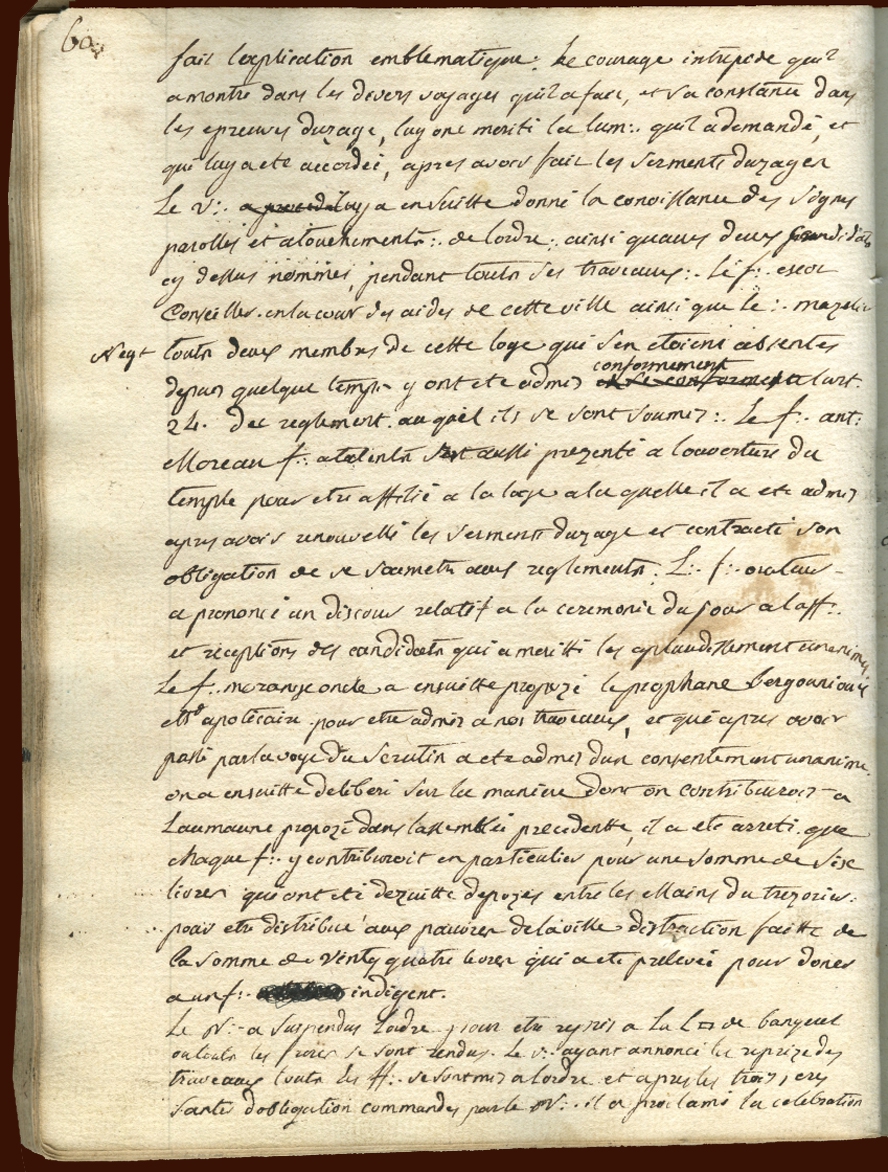 60
fait lexplication emblematique. Le courage intrepide quil
a montré dans les divers voyages quil a fait, et sa constance dans
les epreuves duzage, luy ont merité la lum:. quil a demandé, et
qui luy a eté accordéé, apres avoir fait les serments duzages
Le V:. luy a ensuitte donné la conoissance des signes
parolles et atouchements:. de lordre:. ainsi quaux deux
cy dessus nommés, pendant touts ses travaux:. Le f:.
Conseiller en la cour des aides de cette ville ainsi que le:.
Negt touts deux membres de cette loge qui sen etoient absentés
conformement
depuis quelque temps y ont eté admis a lart.
24. des reglement. au quel ils se sont soumis:. Le f:. ant:
Moreau f:. a talents sest aussi prezenté a louverture du
temple pour etre affilié a la loge a la quelle il a eté admis
apres avoir renouvellé les serments duzage et contracté son
obligation de se soumettre aux reglements. L:. f:. orateur
a prononcé un discour relatif a la ceremonie du jour a laff:.
et réceptions des candidats qui a meritté les aplaudissement unanimes
Le f:. oncle a ensuitte propozé le prophane
apoticaire pour etre admis a nos travaux, et qué apres avoir
passé par la voye du scrutin a eté admis dun consentement unanime.
on a ensuitte deliberé sur la maniere dont on contribueroit a
Laumaune propozé dans lassemblée precedentte, il a eté arreté que
chaque f:. y contribueroit en particulier pour une somme de six
livres qui ont eté dezuitte depozés entre les Mains du trezorier:.
pour etre distribué aux pauvres de la ville distraction faitte de
la somme de vingt quatre livres qui a eté prelevéé pour doner
a un f:. indigent.
Le V:. a suspendus Lordre pour etre repris a La L□ de banquet
ou touts les freres se sont rendus. Le V:. ayant annoncé la reprize des
travaux touts les ff:. se sont mis a lordre et apres les trois
santé dobligation commandés par le V:. il a proclamé la celebration